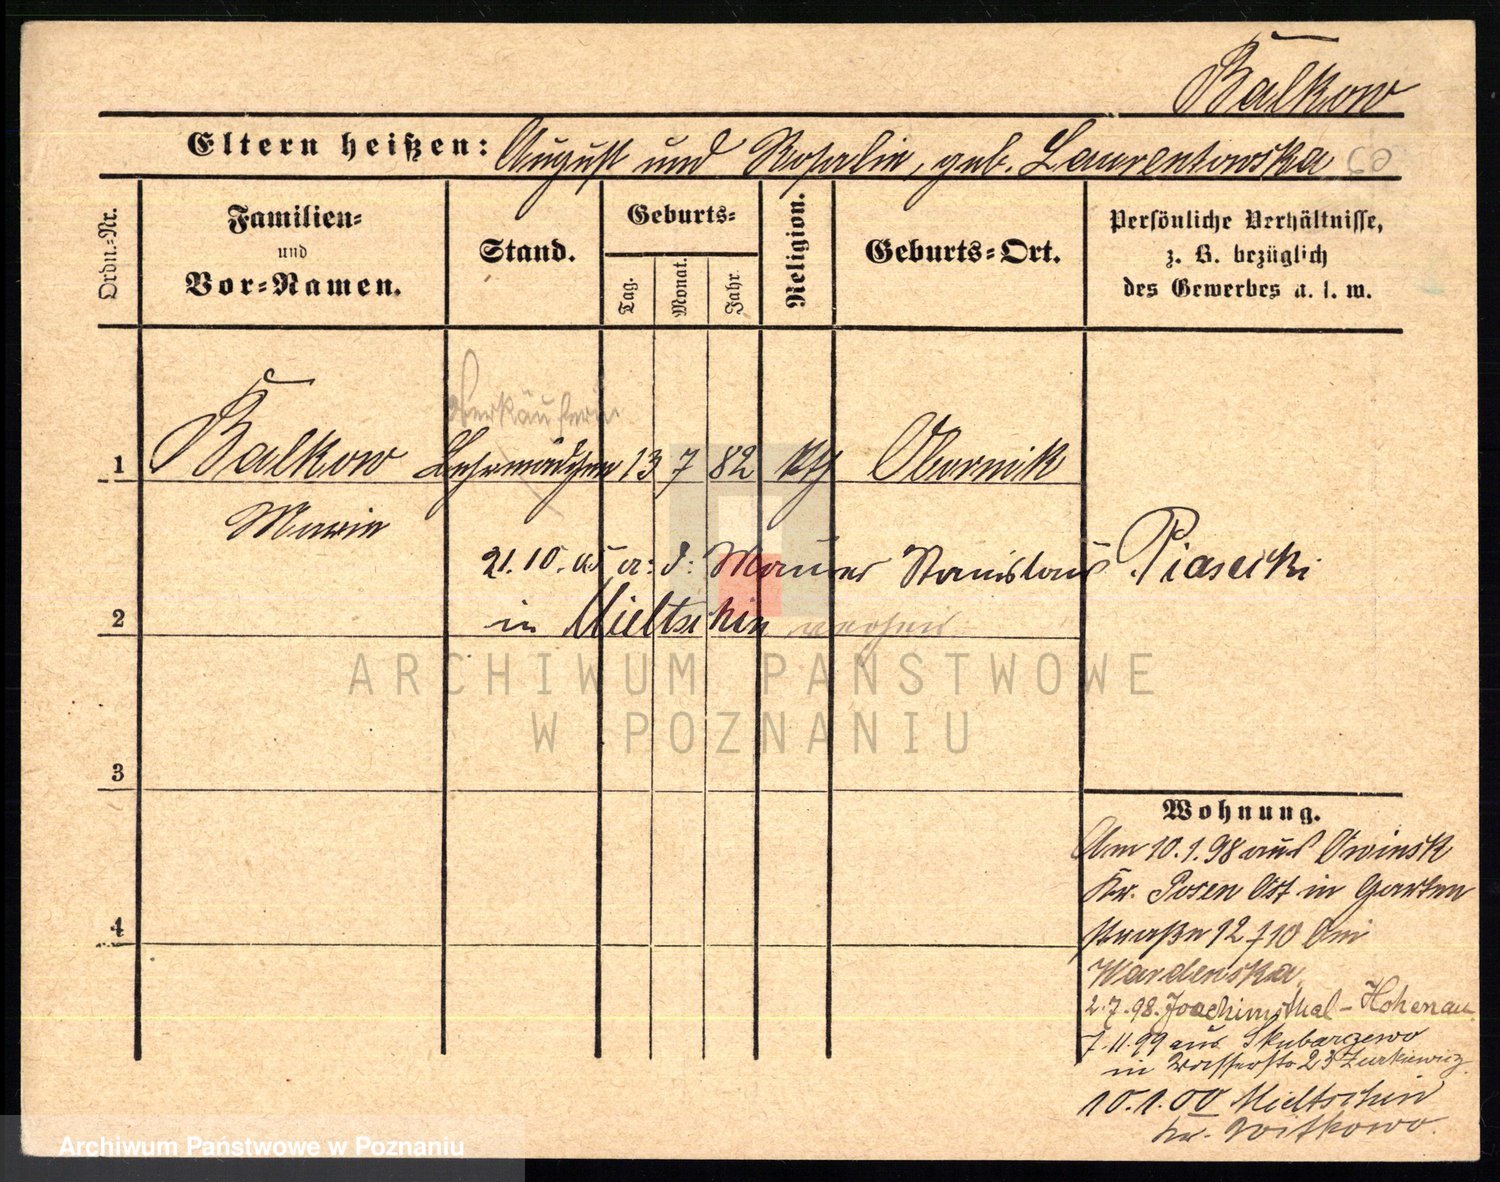 Balkow
Eltern heißen: August und Rosalie, geb. Laurentowska
Ordn.-Nr.
Familien-
und
Vor-Namen.
Stand.
Geburts-
Tag.
Monat.
Jahr
Religion.
Geburts-Ort.
Persönliche Verhältnisse,
z. B. bezüglich
des Gewerbes u. s. w.
Verkäuferin
1 Balkow Lehrmädchen 13 7 82 kth Obornik
Marie
21.10. a: d: Maurer Stanislaus Piasecki
2 in Mieltschin
ARCHIWUM PAŃSTWOWE
W POZNANIU
3
Wohnung.
Am 10.1.98 aus Owinsk
Kr. Posen Ost in Garten
straße 12 bei
Wardenska
2.7.98. Joachimsthal - Hohenau
7.11.99 aus Skubarzewo
in Wasserstr 23 Zurkiewicz
4
10.1.00 Mieltschin
Kr. Witkowo.
Archiwum Państwowe w Poznaniu